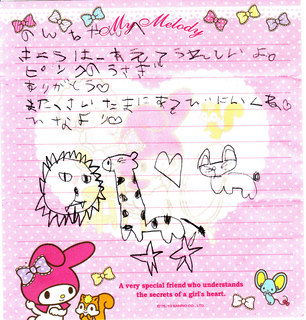 のんちゃんへ
My Melody
きょうはーあえてうれしいよ。
ピンクのうさぎ
ありがとう♡
また さいたまにあそびにいくね。
ひなより♡
A very special friend who understands
the secrets of a girl's heart.
SANRIO CO., LTD.